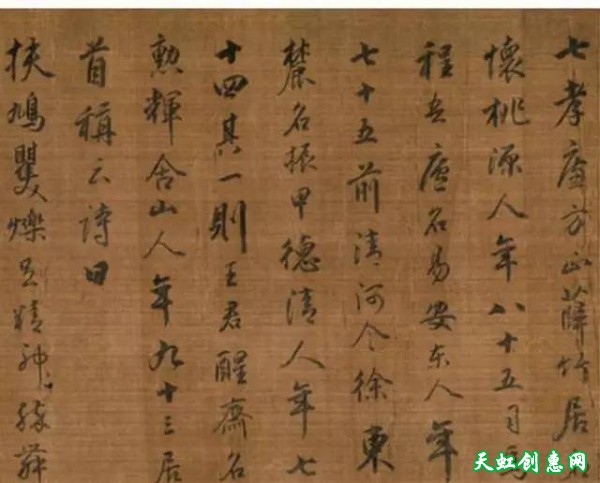 七孝廉方正薛竹居名
懷桃源人年八十五司馬
程 廬名易安東人年
七十五前清河令徐東
麓名振甲德清人年七
十四其一則王君醒齋名
勲輝含山人年九十三居
首稱云詩曰
扶鳩矍爍足精神 
天虹创惠网